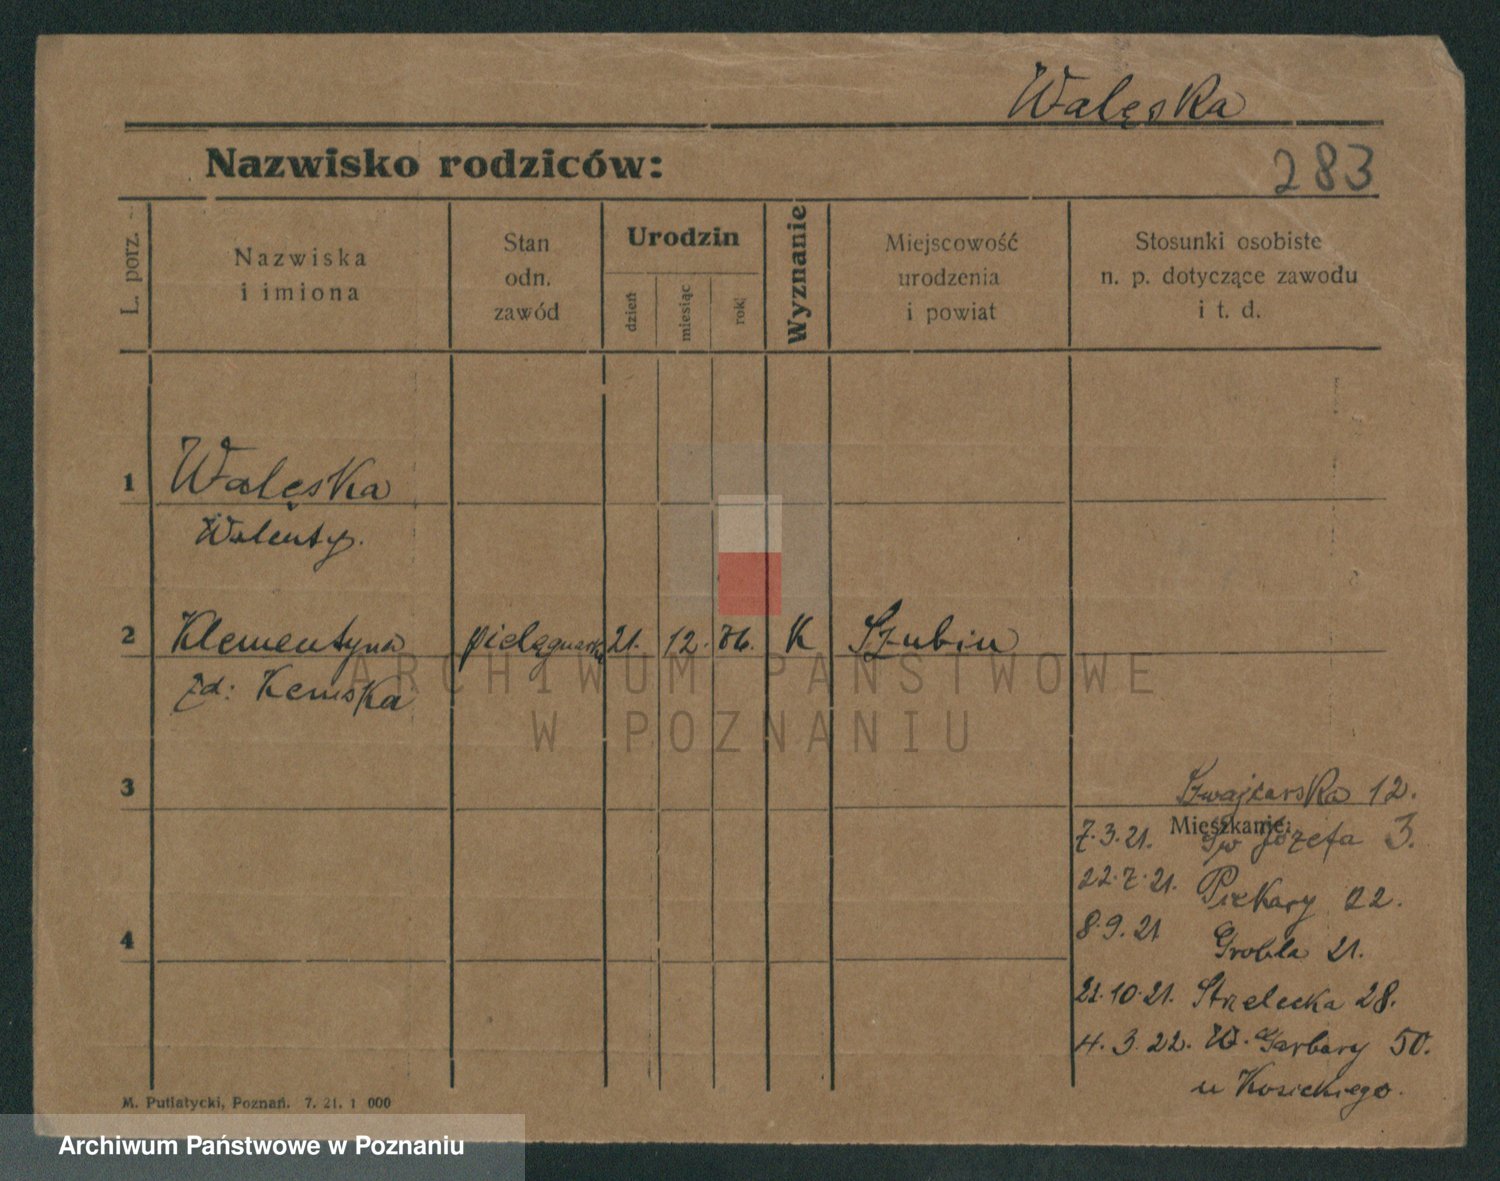 Walęska
Nazwisko rodziców:
283
L. porz.
Nazwiska
i imiona
Stan
odn.
zawód
Urodzin
dzień
miesiąc
rok
Wyznanie
Miejscowość
urodzenia
i powiat
Stosunki osobiste
n. p. dotyczące zawodu
i t. d.
1 Walęska
Walenty.
2 Klementyna pielęgniarka 21. 12. 76. K Szubin
zd: Kemska
3
Szwajcarska 12.
Mieszkanie:
7.3.21. Św Józefa 3.
22.7.21. Piekary 22.
8.9.21 Grobla 21.
4
21.10.21. Strzelecka 28.
4.3.22. W. Garbary 50.
u Kosickiego.
M. Putiatycki, Poznań. 7. 21. 1 000
ARCHIWUM PAŃSTWOWE
W POZNANIU
Archiwum Państwowe w Poznaniu